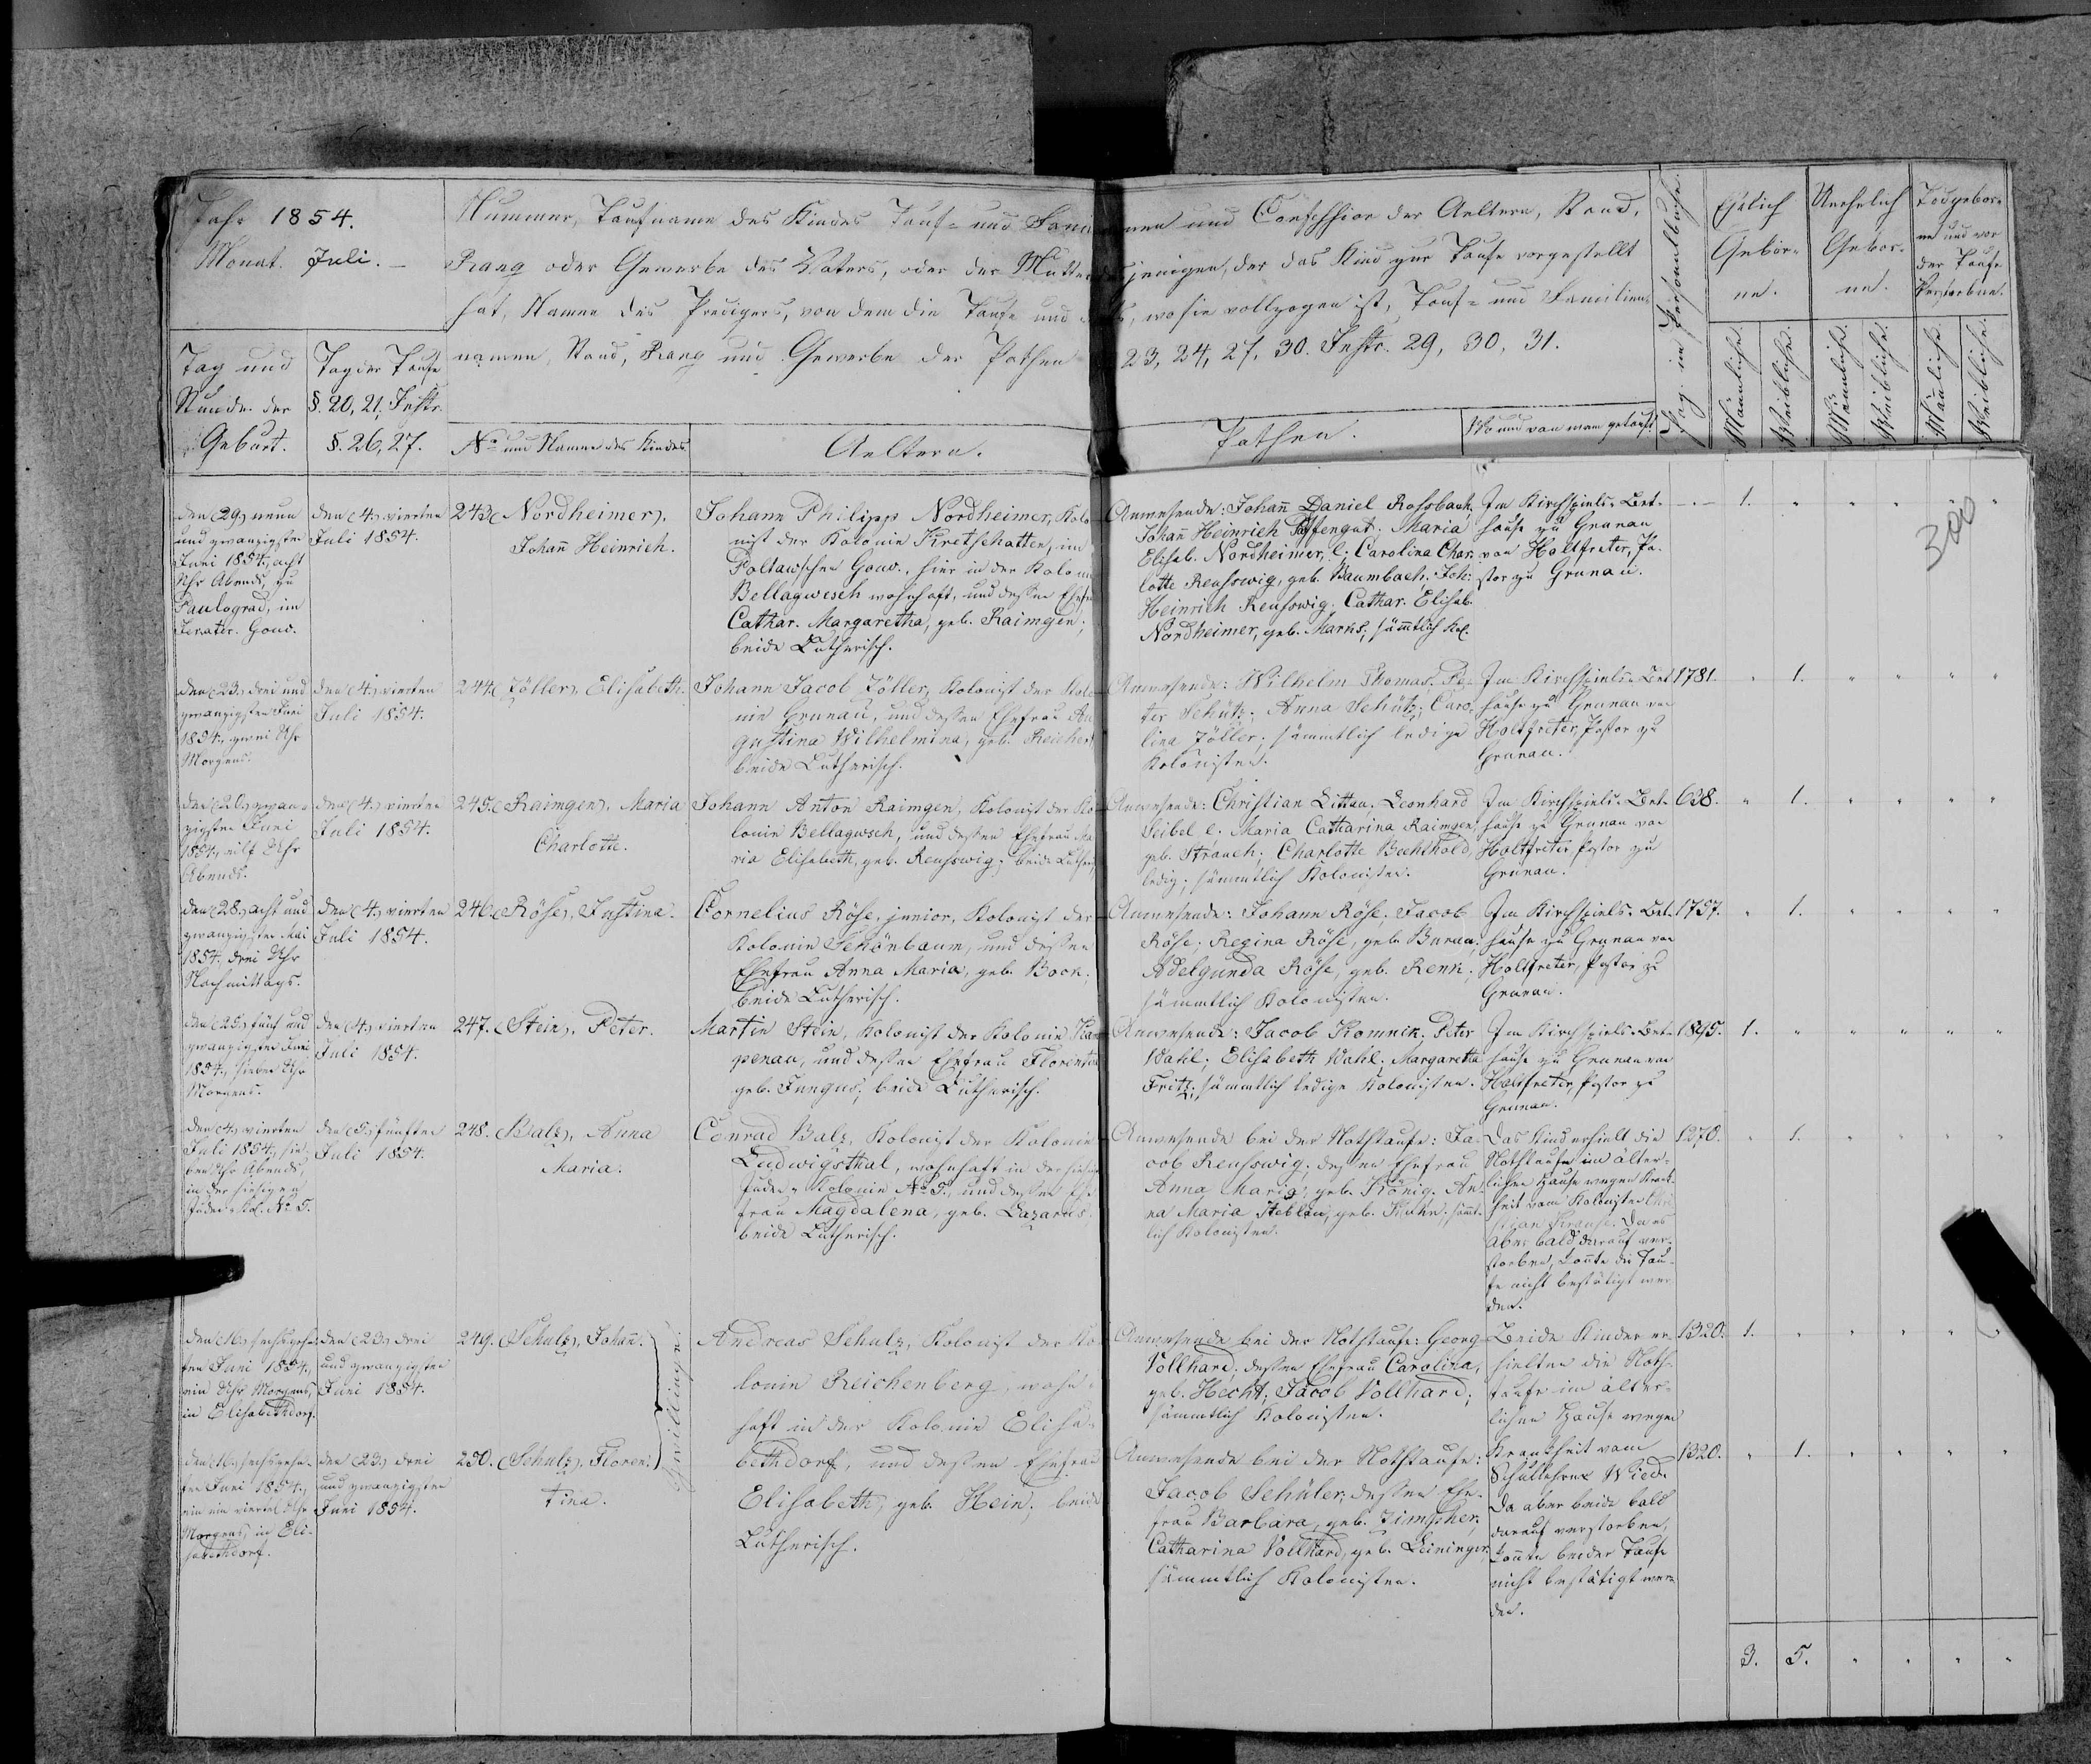 Jahr 1854.
Monat. Juli. —
Nummer, Taufname des Kindes Tauf- und Familiennamen und Confession der Aeltern, Stand,
Rang oder Gewerbe des Vaters, oder der Mutter desjenigen, der das Kind zur Taufe vorgestellt
hat, Namen des Predigers, von dem die Taufe und wo sie vollzogen ist, Tauf- und Familien-
namen, Stand, Rang und Gewerbe der Pathen 23, 24, 27, 30. Instr. 29, 30, 31.
Tag und
Stunde der
Geburt.
Tag der Taufe
§. 20, 21, Instr.
§. 26, 27.
No und Namen des Kindes.
Aeltern.
Pathen.
Wo und von wem getauft.
Pag. im Personalbuche.
Ehelich
Gebor-
ne.
Unehelich
Gebor-
ne.
Todgebor-
ne und vor
der Taufe
Verstorbene.
Männliche.
Weibliche.
Männliche.
Weibliche.
Männliche.
Weibliche.
300
den (29.) neun
und zwanzigsten
Juni 1854., acht
Uhr Abends, zu
Paulograd, im
Jekater. Gouv.
den (4.) vierten
Juli 1854.
243. (Nordheimer).
Johann Heinrich.
Johann Philipp Nordheimer, Kolo-
nist der Kolonie Kretschatten, im
Poltawschen Gouv., hier in der Kolonie
Bellagwesch wohnhaft, und dessen Ehefr.
Cathar. Margaretha, geb. Raimgen;
beide Lutherisch.
Anwesende: Johann Daniel Rossbach,
Johann Heinrich Maria
Elisab. Nordheimer, l. Carolina Char-
lotte Reusswig, geb. Baumbach. Joh:
Heinrich Reusswig. Cathar. Elisab.
Nordheimer, geb. Marks; sämmtlich Kol.
Im Kirchspiels-Bet-
hause zu Grunau
von Holtfreter, Pa-
stor zu Grunau.
1.
den (23.) drei und
zwanzigsten Juni
1854., zwei Uhr
Morgens.
den (4.) vierten
Juli 1854.
244. (Zöller), Elisabeth.
Johann Jacob Zöller, Kolonist der Kolo-
nie Grunau, und dessen Ehefrau Au-
gustina Wilhelmina, geb. Reichert,
beide Lutherisch.
Anwesende: Wilhelm Thomas. Pe-
ter Schütz; Anna Schütz; Caro-
lina Zöller; sämmtlich ledige
Kolonisten.
Im Kirchspiels-Bet-
hause zu Grunau von
Holtfreter, Pastor zu
Grunau.
1781.
1.
den (20.) zwan-
zigsten Juni
1854., eilf Uhr
Abends.
den (4.) vierten
Juli 1854.
245. (Raimgen), Maria
Charlotte.
Johann Anton Raimgen, Kolonist der Ko-
lonie Bellagwesch, und dessen Ehefrau Ma-
ria Elisabeth, geb. Reusswig; beide Luther.
Anwesende: Christian Littau. Leonhard
Seibel l. Maria Catharina Raimgen,
geb. Strauch; Charlotte Bechthold,
ledig; sämmtlich Kolonisten.
Im Kirchspiels-Bet-
hause zu Grunau von
Holtfreter, Pastor zu
Grunau.
638.
1.
den (28.) acht und
zwanzigsten Mai
1854., drei Uhr
Nachmittags.
den (4.) vierten
Juli 1854.
246. (Röse), Justina.
Cornelius Röse, junior, Kolonist der
Kolonie Schönbaum, und dessen
Ehefrau Anna Maria, geb. Bock;
beide Lutherisch.
Anwesende: Johann Röse, Jacob
Röse; Regina Röse, geb. Burau;
Adelgunda Röse, geb. Renk;
sämmtlich Kolonisten.
Im Kirchspiels-Bet-
hause zu Grunau von
Holtfreter, Pastor zu
Grunau.
1757.
1.
den (25.) fünf und
zwanzigsten Juni
1854., sieben Uhr
Morgens.
den (4.) vierten
Juli 1854.
247. (Stein), Peter.
Martin Stein, Kolonist der Kolonie Kam-
penau, und dessen Ehefrau Florentina
geb. Jungus; beide Lutherisch.
Anwesende: Jacob Komnik; Peter
Wahl; Elisabeth Wahl; Margaretha
Fritz; sämmtlich ledige Kolonisten.
Im Kirchspiels-Bet-
hause zu Grunau von
Holtfreter, Pastor zu
Grunau.
1895.
1.
den (4.) vierten
Juli 1854., sie-
ben Uhr Abends,
in der hiesigen
Juden-Kol. No 5.
den (5.) fünften
Juli 1854.
248. (Balz), Anna
Maria.
Conrad Balz, Kolonist der Kolonie
Ludwigsthal, wohnhaft in der hiesigen
Juden-Kolonie No 5., und dessen Ehe-
frau Magdalena, geb. Lazarus,
beide Lutherisch.
Anwesende bei der Nothtaufe: Ja-
cob Reusswig; dessen Ehefrau
Anna Maria, geb. König. An-
na Maria Steblau, geb. sämmt-
lich Kolonisten.
Das Kind erhielt die
Nothtaufe im älter-
lichen Hause wegen Krank-
heit vom Kolonisten Chri-
stian Krause. Da es
aber bald darauf ver-
storben, konnte die Tau-
fe nicht bestätigt wer-
den.
1270.
1.
den (16.) sechszehn-
ten Juni 1854.,
ein Uhr Morgens,
in Elisabethdorf.
den (23.) drei
und zwanzigsten
Juni 1854.
249. (Schulz), Johann.
Zwillinge.
Andreas Schulz, Kolonist der Ko-
lonie Reichenberg, wohn-
haft in der Kolonie Elisa-
bethdorf, und dessen Ehefrau
Elisabeth, geb. Hein; beide
Lutherisch.
Anwesende bei der Nothtaufe: Georg
Vollhard; dessen Ehefrau Carolina,
geb. Hecht; Jacob Vollhard;
sämmtlich Kolonisten.
Beide Kinder er-
hielten die Noth-
taufe im älter-
lichen Hause wegen
Krankheit vom
Schullehrer Wied.
Da aber beide bald
darauf verstorben,
konnte beider Taufe
nicht bestätigt wer-
den.
1320.
1.
den (16.) sechszehn-
ten Juni 1854.,
ein ein viertel Uhr
Morgens, in Eli-
sabethdorf.
den (23.) drei
und zwanzigsten
Juni 1854.
250. (Schulz), Floren-
tina.
Anwesende bei der Nothtaufe:
Jacob Schüler; dessen Ehe-
frau Barbara, geb. Zimscher,
Catharina Vollhard, geb. Leininger,
sämmtlich Kolonisten.
1320.
1.
3. 5.